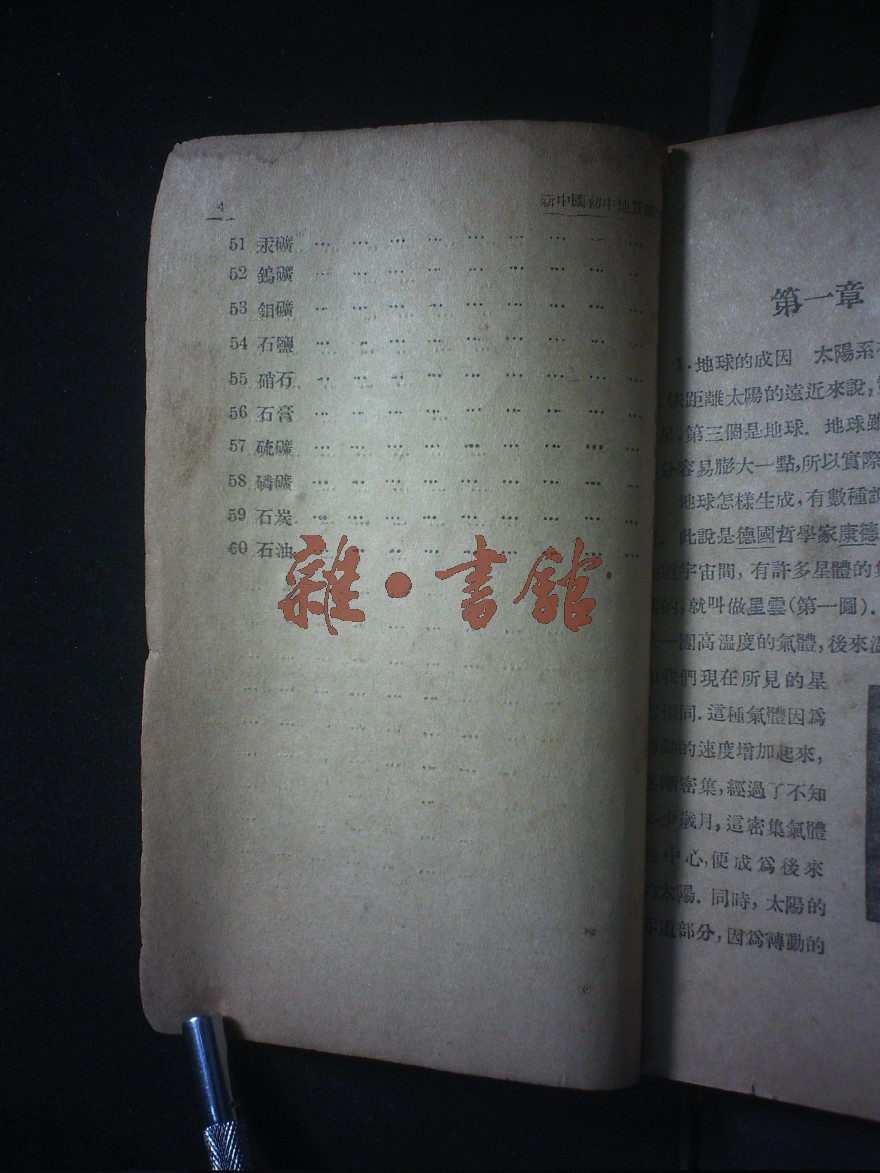 4
新中國初中地質礦
51 汞礦 … … … … … … … … …
52 鎢礦 … … … … … … … … …
53 鉬礦 … … … … … … … … …
54 石鹽 … … … … … … … … …
55 硝石 … … … … … … … … …
56 石膏 … … … … … … … … …
57 硫礦 … … … … … … … … …
58 磷礦 … … … … … … … … …
59 石炭 … … … … … … … … …
60 石油 … … … … … … … … …
雜·書館
第一章
1.地球的成因 太陽系
依距離太陽的遠近來說,
星,第三個是地球. 地球雖
分容易膨大一點,所以實際
地球怎樣生成,有數種說
此說是德國哲學家康德
宇宙間,有許多星體的集
的,就叫做星雲(第一圖).
一團高溫度的氣體,後來溫
我們現在所見的星
相同.這種氣體因爲
動的速度增加起來,
漸密集,經過了不知
少歲月,這密集氣體
中心,便成爲後來
太陽. 同時,太陽的
赤道部分,因爲轉動的